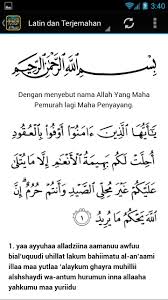 3:40
Latin dan Terjemahan
بِسْمِ اللَّهِ الرَّحْمَٰنِ الرَّحِيمِ
Dengan menyebut nama Allah Yang Maha
Pemurah lagi Maha Penyayang.
يَٰٓأَيُّهَا ٱلَّذِينَ ءَامَنُوٓا۟ أَوْفُوا۟ بِٱلْعُقُودِ
أُحِلَّتْ لَكُم بَهِيمَةُ ٱلْأَنْعَٰمِ إِلَّا مَا يُتْلَىٰ
عَلَيْكُمْ غَيْرَ مُحِلِّى ٱلصَّيْدِ وَأَنتُمْ حُرُمٌ إِنَّ
ٱللَّهَ يَحْكُمُ مَا يُرِيدُ ١
1. yaa ayyuhaa alladziina aamanuu awfuu
bial'uquudi uhillat lakum bahiimatu al-an'aami
illaa maa yutlaa 'alaykum ghayra muhillii
alshshaydi wa-antum hurumun inna allaaha
yahkumu maa yuriidu